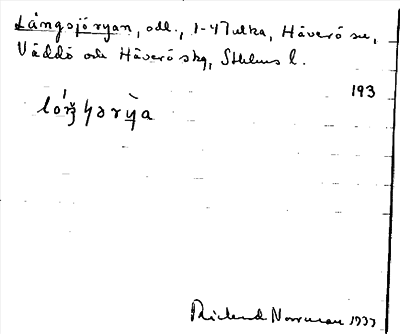 Långsjöryan, odl., 1-47 utka, Häverö sn,
Väddö och Häverö skg, Sthlms l.
193
Rickard Norrman 1937